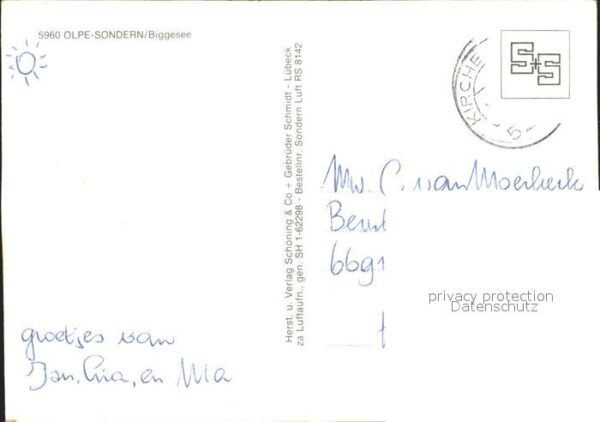 5960 OLPE-SONDERN/Biggesee
Herst. u. Verlag Schöning & Co + Gebrüder Schmidt - Lübeck
za Luftaufn., gen. SH 1-62298 - Bestellnr. Sondern Luft RS 8142
S+S
KIRCHE
-5-
Mw. C. van Moerbeek
6691
privacy protection
Datenschutz
groetjes van
Jan, Ria, en Mia